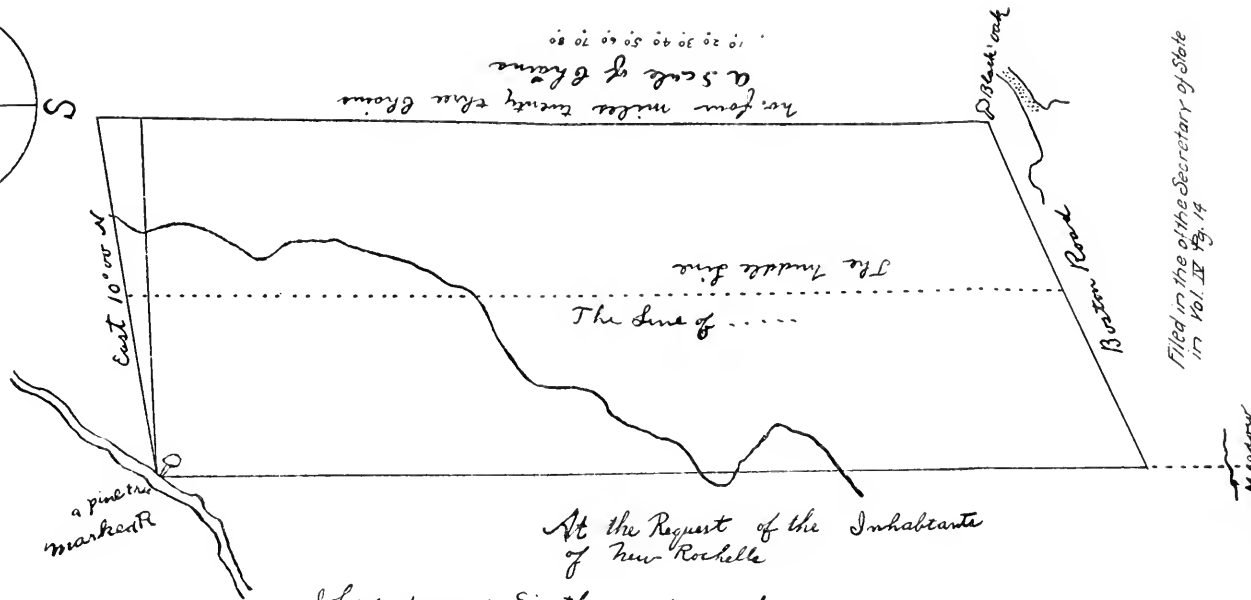 S
10 20 30 40 50 60 70 80
a Scale of Chains
no. four miles twenty three Chains
Black oak
Filed in the of the Secretary of State
in Vol. IV Pg. 14
East 10°00 N
The middle Line
The Line of .....
Boston Road
a pine tree
marked R
Meadow
At the Request of the Inhabtants
of New Rochelle